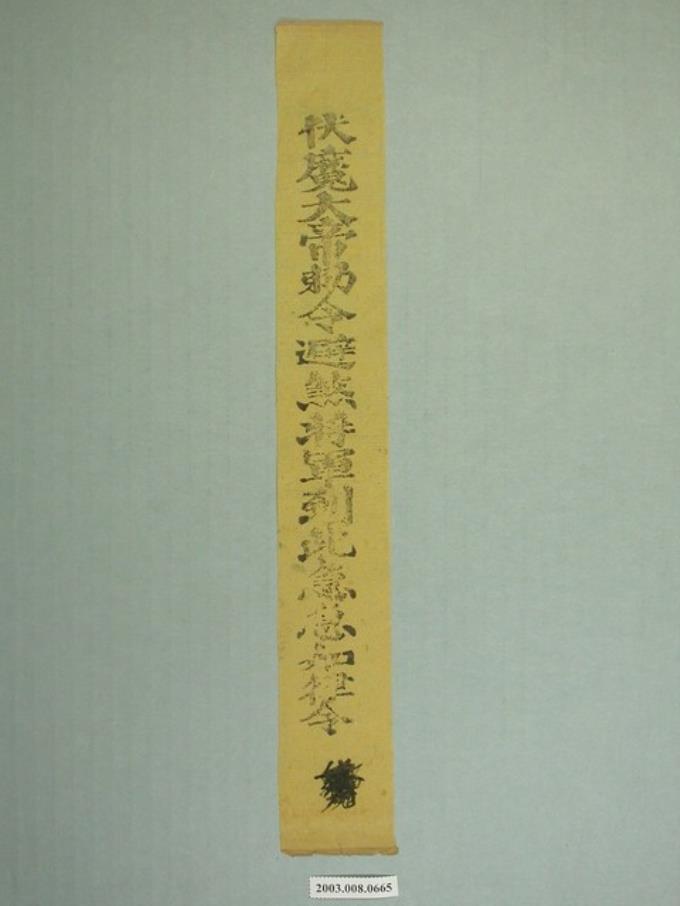 伏魔大帝勅令避煞將軍到此急急如律令
2003.008.0665